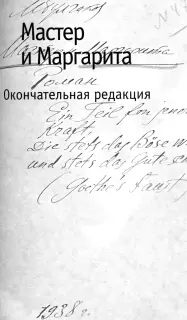 Булгаков
Мастер
и Маргарита
Мастер и Маргарита
Роман
Окончательная редакция
Ein Teil von jener
Kraft,
Die stets das Böse w
und stets das Gute s
(Goethe's Faust)
1938 г.